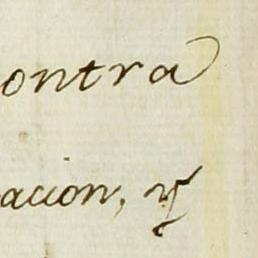 contra
acion, y